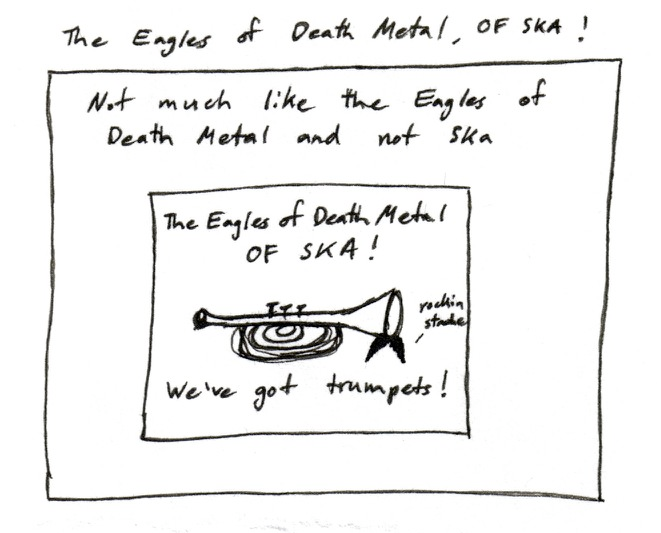 The Eagles of Death Metal, OF SKA!
Not much like the Eagles of
Death Metal and not Ska
The Eagles of Death Metal
OF SKA!
rockin
stache
We've got trumpets!